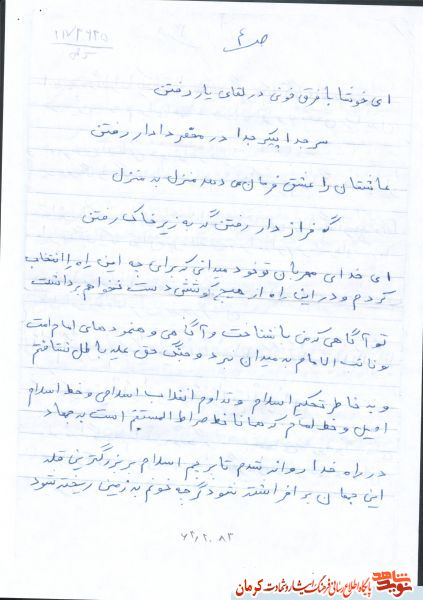 ص ۴
ای خوشا با فرق خونی در لقای یار رفتن
سر جدا پیکر جدا در محضر دادار رفتن
عاشقان را عشق فرمان می دهد منزل به منزل
گه فراز دار رفتن گه به زیر خاک رفتن
ای خدای مهربان تو خود میدانی که برای چه این راه را انتخاب
کردم و در این راه از هیچ کوششی دست نخواهم برداشت
تو آگاهی که من با شناخت و آگاهی و رهنمودهای امام امت
و نائب الامام به میدان نبرد و جنگ حق علیه باطل شتافتم
و به خاطر تحکیم اسلام و تداوم انقلاب اسلامی و خط اسلام
اصیل و خط امام که همانا خط صراط المستقیم است به جهاد
در راه خدا روانه شدم تا پرچم اسلام بر بزرگترین قله
این جهان برافراشته شود گرچه خونم به زمین ریخته شود
۶۲٫۲٫۸۳
پایگاه اطلاع رسانی فرهنگ ایثار و شهادت کرمان
نوید شاهد